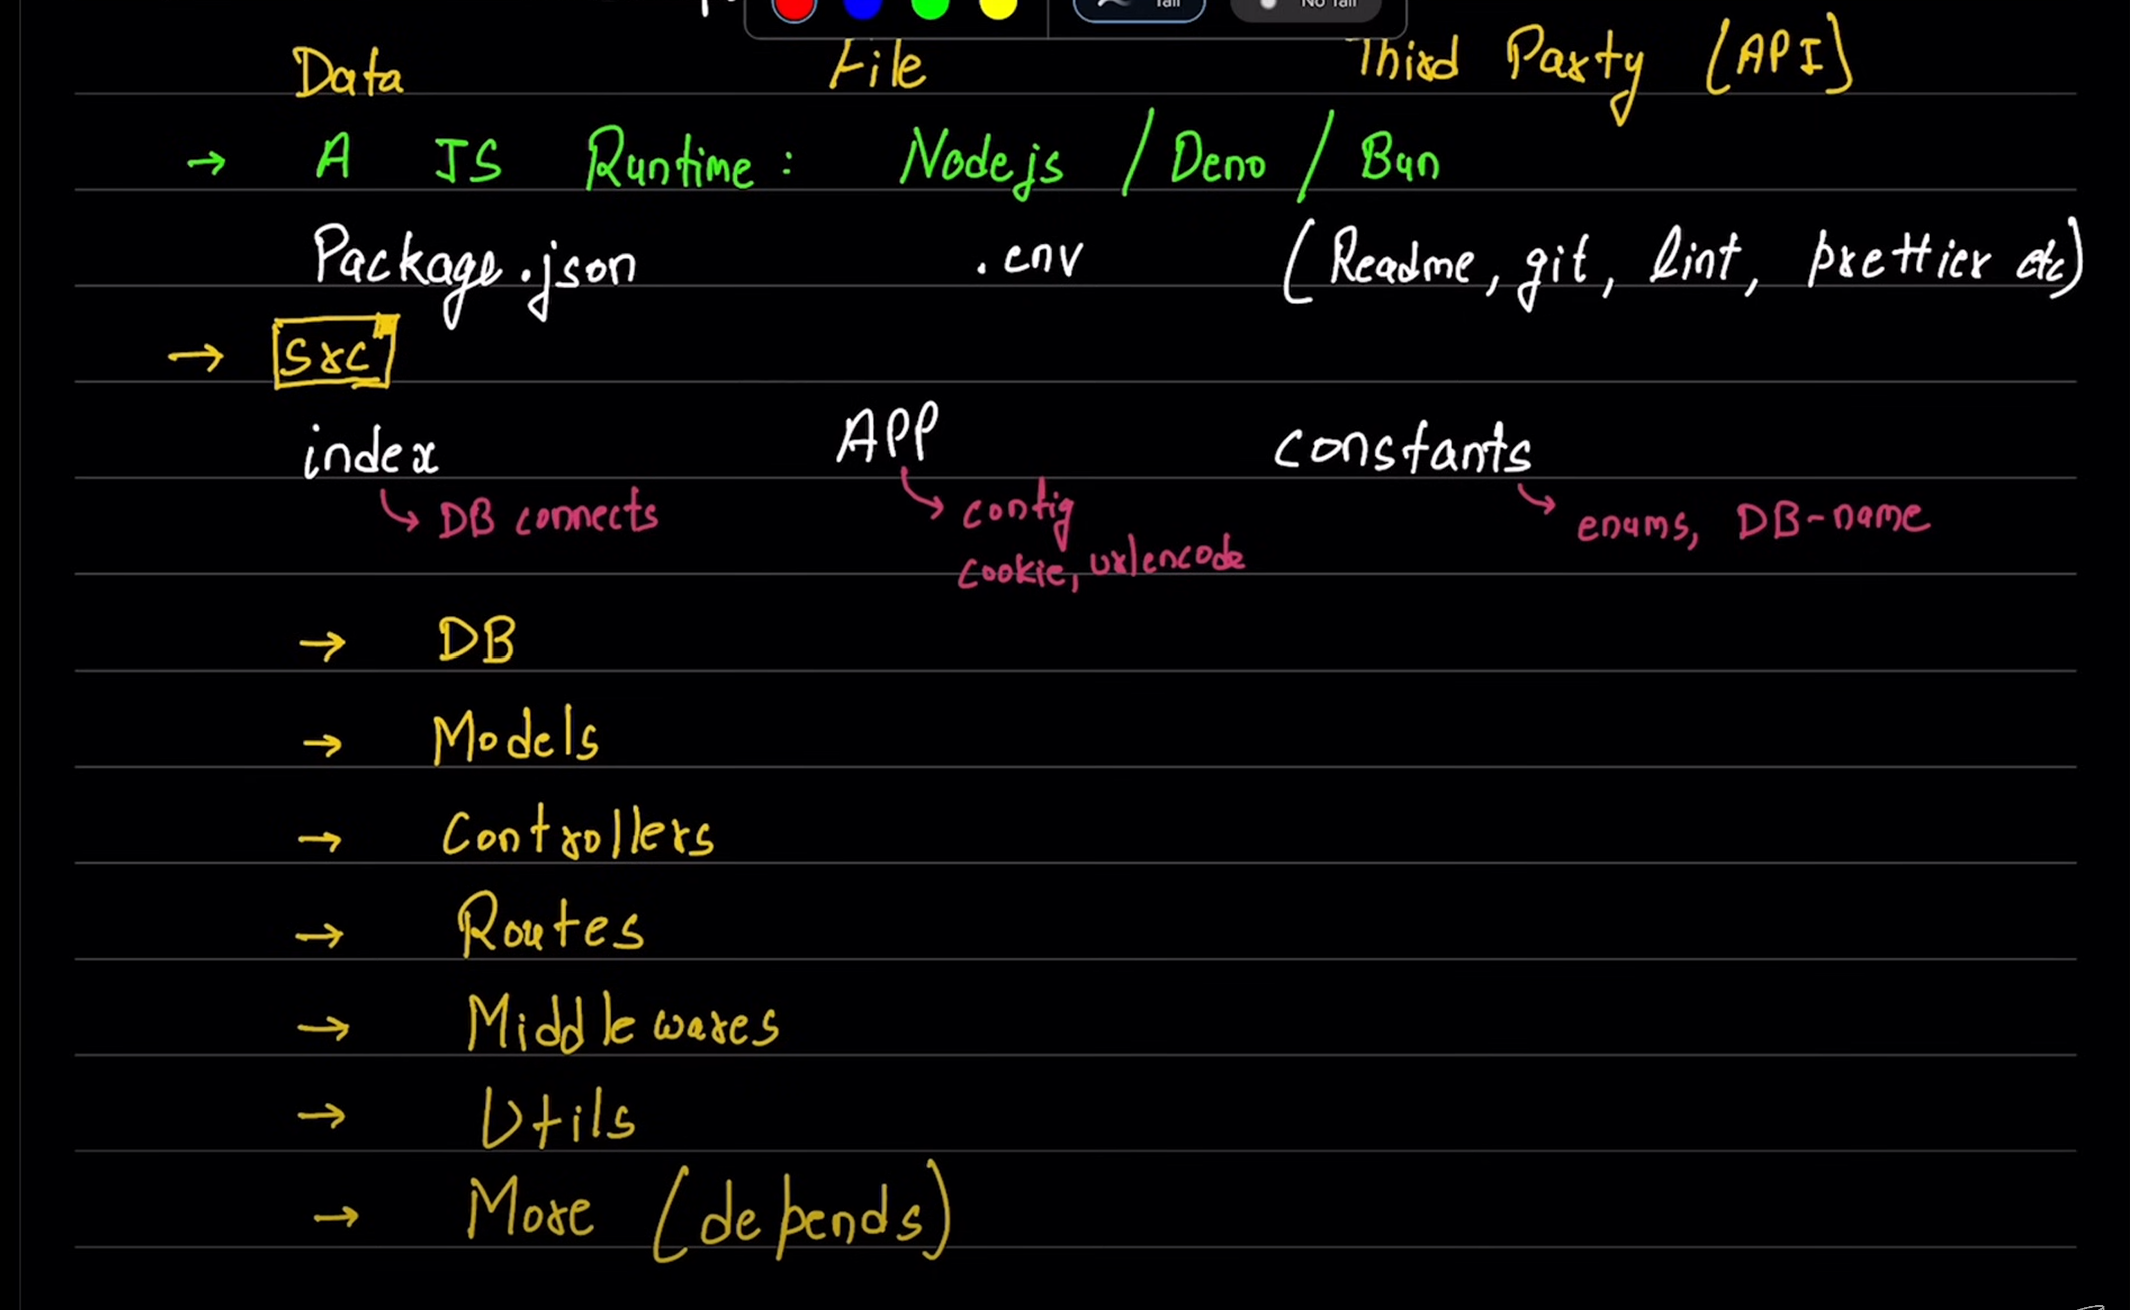 Tail No Tail
Data File Third Party (API)
→ A JS Runtime: Nodejs / Deno / Bun
Package.json .env (Readme, git, lint, prettier etc)
→ src
index APP constants
↳ DB connects ↳ config ↳ enums, DB-name
cookie, urlencode
→ DB
→ Models
→ Controllers
→ Routes
→ Middlewares
→ Utils
→ More (depends)